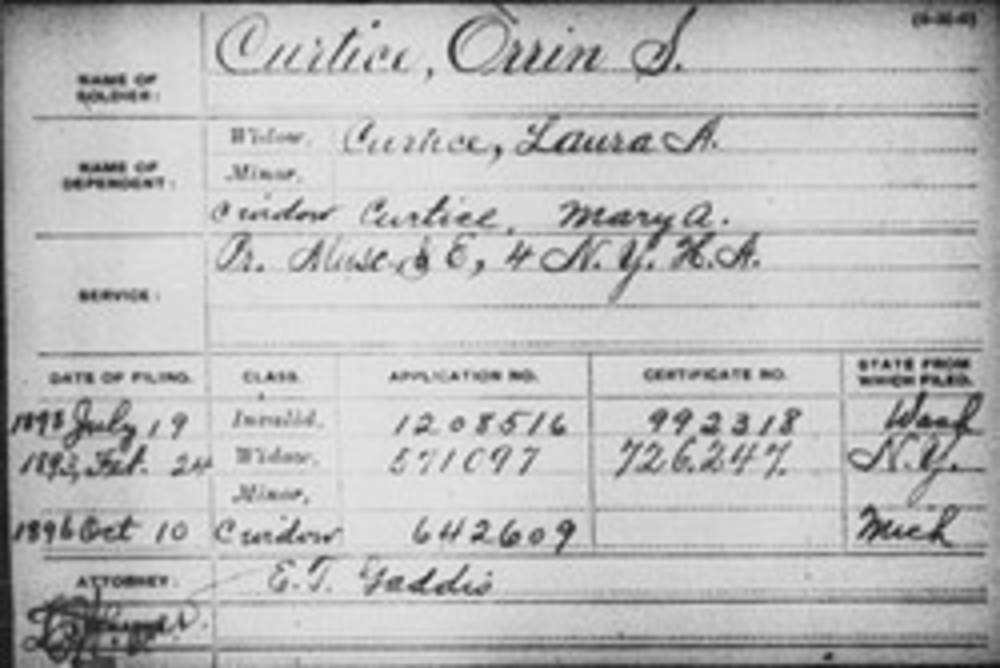 NAME OF SOLDIER: Curtice, Orrin S.
NAME OF DEPENDENT: Widow, Curtice, Laura A.
Minor,
C widow Curtice, Mary A.
SERVICE: E, 4 N.Y. H.A.
DATE OF FILING. CLASS. APPLICATION NO. CERTIFICATE NO. STATE FROM WHICH FILED.
July 19 Invalid, 1208516 992318 Wash
Feb. 24 Widow, 571097 726.247. N.Y.
Minor,
1896 Oct 10 C widow 642609 Mich
ATTORNEY: E. T. Gaddis